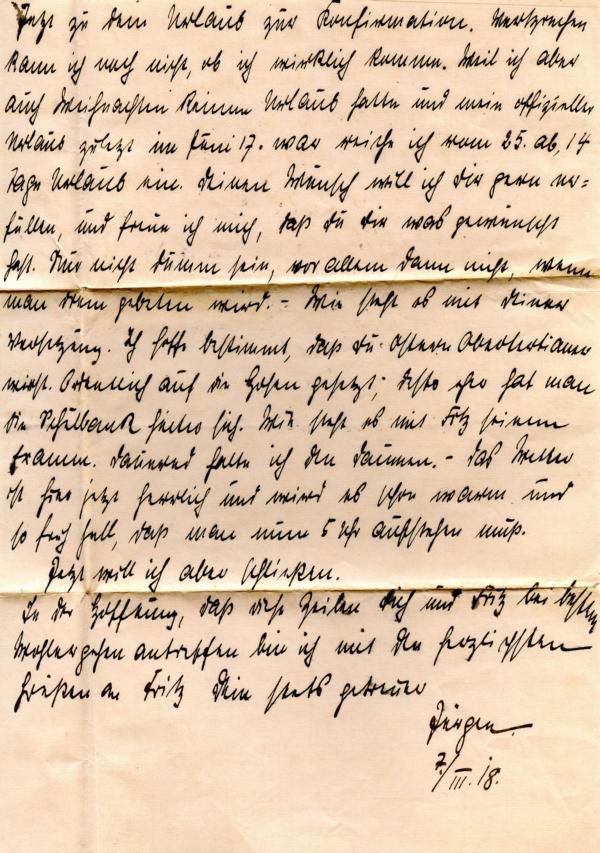 Jetzt zu dem Urlaub zur Konfirmation. Versprechen
kann ich noch nicht, ob ich wirklich komme. Weil ich aber
auch Weihnachten keinen Urlaub hatte und mein offizieller
Urlaub zuletzt im Juni 17. war reiche ich vom 25. ab, 14
Tage Urlaub ein. Deinen Wunsch will ich Dir gern er=
füllen, und freue ich mich, daß Du Dir was gewünscht
hast. Nur nicht dumm sein, vor allem dann nicht, wenn
man drum gebeten wird. – Wie steht es mit Deiner
Versetzung. Ich hoffe bestimmt, daß Du Ostern Obertertianer
wirst. Ordentlich auf die Hosen gesetzt; desto eher hat man
die Schulbank hinter sich. Wie steht es mit Fritz seinem
Examen. Dauernd halte ich den Daumen. – Das Wetter
ist hier jetzt herrlich und wird es schon warm und
so früh hell, daß man nun 5 Uhr aufstehen muß.
Jetzt will ich aber schließen.
In der Hoffnung, daß diese Zeilen Dich und Fritz bei bestem
Wohlergehen antreffen bin ich mit den herzlichsten
Grüßen an Fritz Dein stets getreuer
Jürgen.
7/III.18.